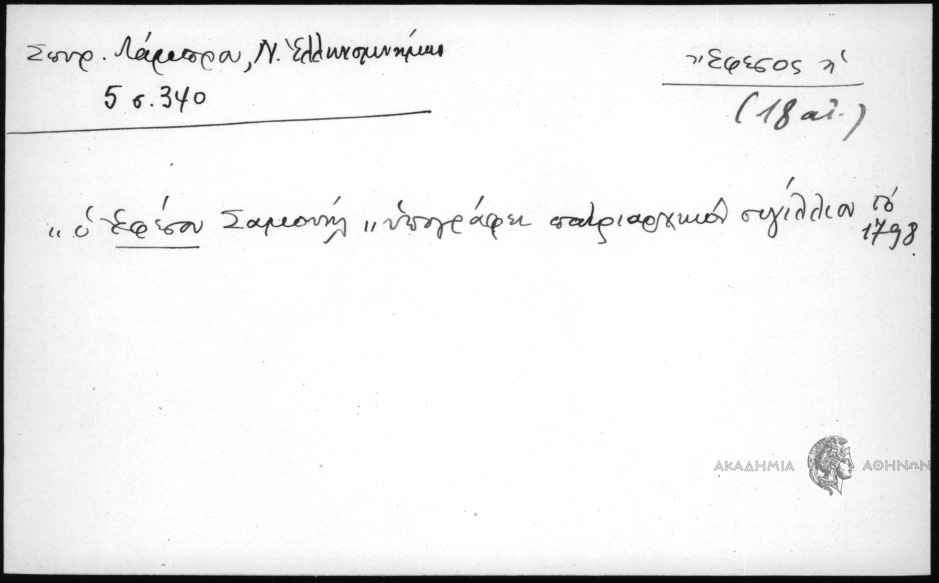 Σπυρ. Λάμπρου, Ν. Ἑλληνομνήμων
5 σ. 340
Ἔφεσος ἡ
(18 αἰ.)
„ ὁ Ἐφέσου Σαμουήλ „ ὑπογράφει πατριαρχικόν σιγίλλιον τό
1798
ΑΚΑΔΗΜΙΑ ΑΘΗΝΩΝ